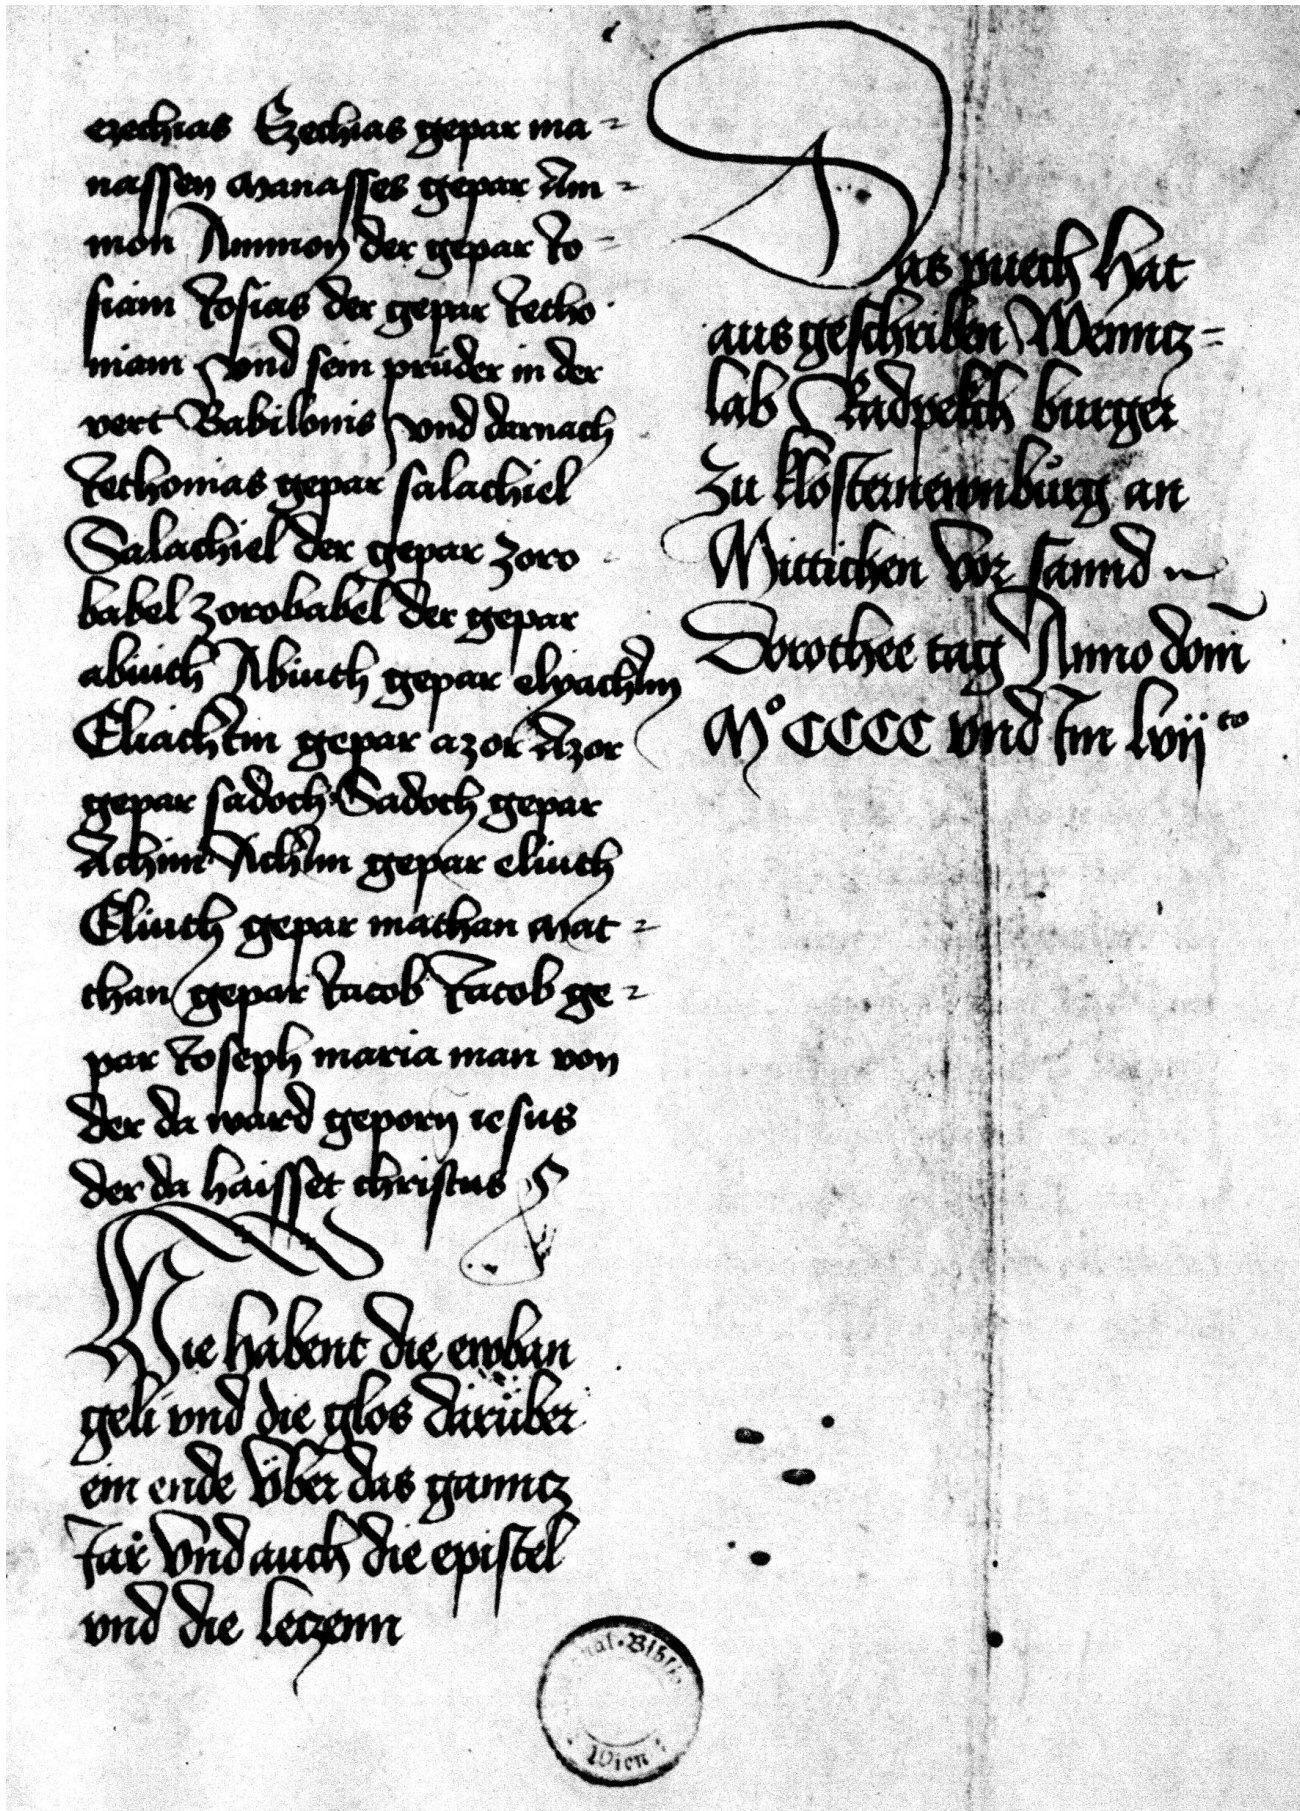 ezechias Ezechias gepar ma-
nassen Manasses gepar Am-
mon Ammon der gepar Io-
siam Iosias der gepar Iecho
niam vnd sein prüder in der
vert Babilonis vnd darnach
Iechonias gepar salachiel
Salachiel der gepar zoro
babel zorobabel der gepar
abiuth Abiuth gepar elyachim
Eliachim gepar azor Azor
gepar sadoch Sadoch gepar
Achim Achim gepar eliuth
Eliuth gepar mathan Mat-
than gepar Iacob Iacob ge-
par Ioseph maria man von
der da ward geporn iesus
der da haisset christus
Hie habent die ewban
geli vnd die glos darüber
ein ende Über das ganntz
Iar Vnd auch die epistel
vnd die leczenn
Das puech Hat
aus geschriben Wenntz-
lab Radpekch burger
Zu klosternewnburg an
Mittichen Vor sannd
Dorothee tag Anno domi
Mº CCCC vnd Im lvijto
Wien